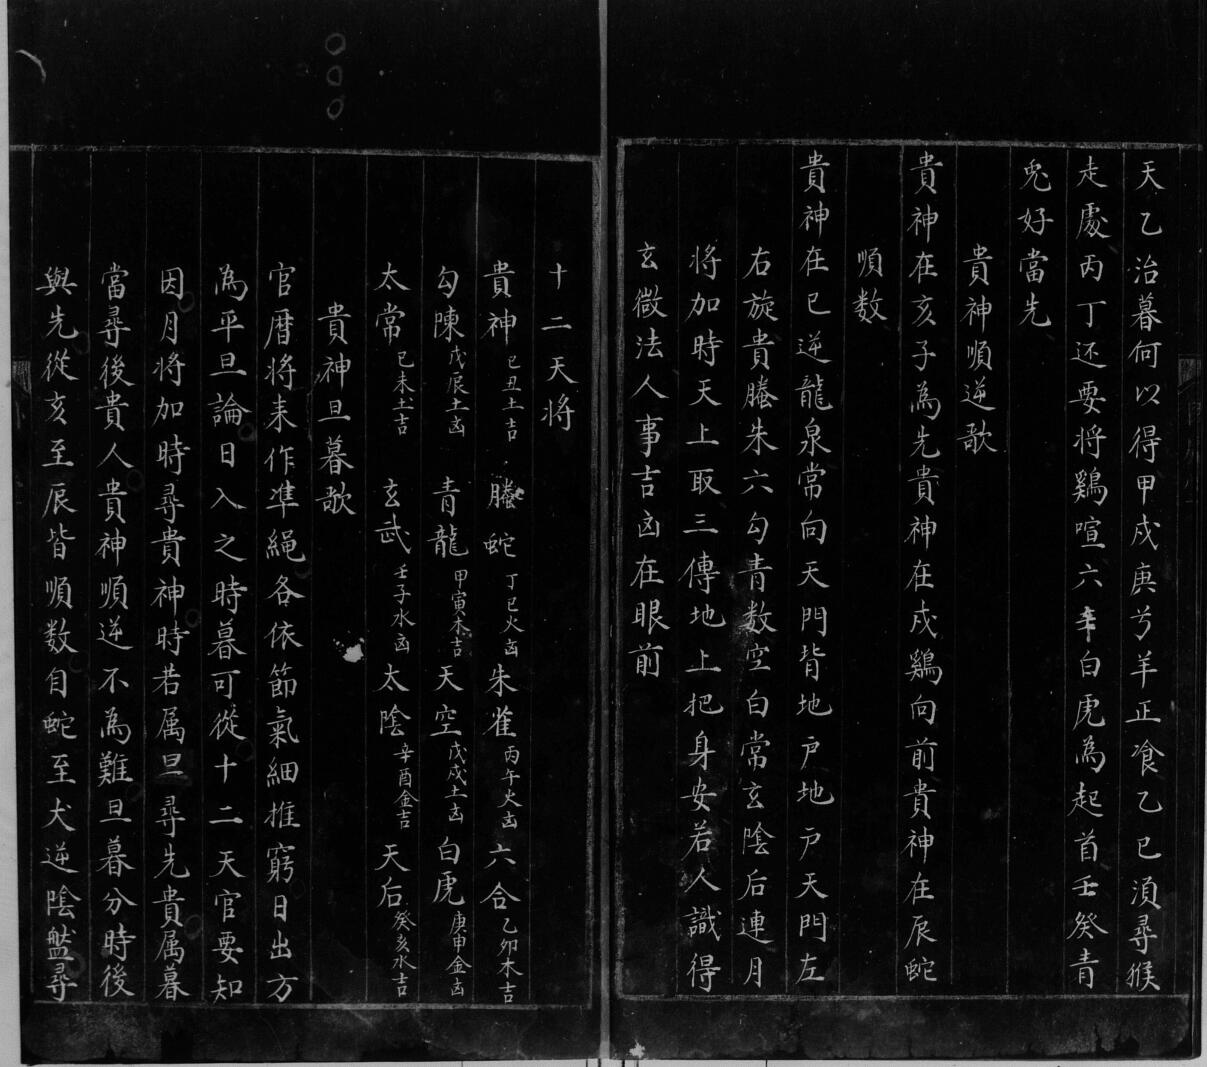 天乙治暮何以得甲戍庚兮羊正飡乙巳湏尋猴
走處丙丁还要将鷄喧六辛白虎為起首壬癸青
兎好當先
貴神順逆歌
貴神在亥子為先貴神在戍鷄向前貴神在辰蛇
順数
貴神在巳逆龍泉常向天門背地户地户天門左
右旋貴螣朱六勾青数空白常玄陰后連月
将加時天上取三傳地上把身安若人識得
玄微法人事吉凶在眼前
十二天将
貴神己丑土吉 螣蛇丁巳火凶 朱雀丙午火凶 六合乙卯木吉
勾陳戊辰土凶 青龍甲寅木吉 天空戊戍土凶 白虎庚申金凶
太常己未土吉 玄武壬子水凶 太陰辛酉金吉 天后癸亥水吉
貴神旦暮歌
官暦将来作準繩各依節氣細推窮日出方
為平旦論日入之時暮可從十二天官要知
因月将加時尋貴神時若属旦尋先貴属暮
當尋後貴人貴神順逆不為難旦暮分時後
與先從亥至辰皆順数自蛇至犬逆陰盤尋